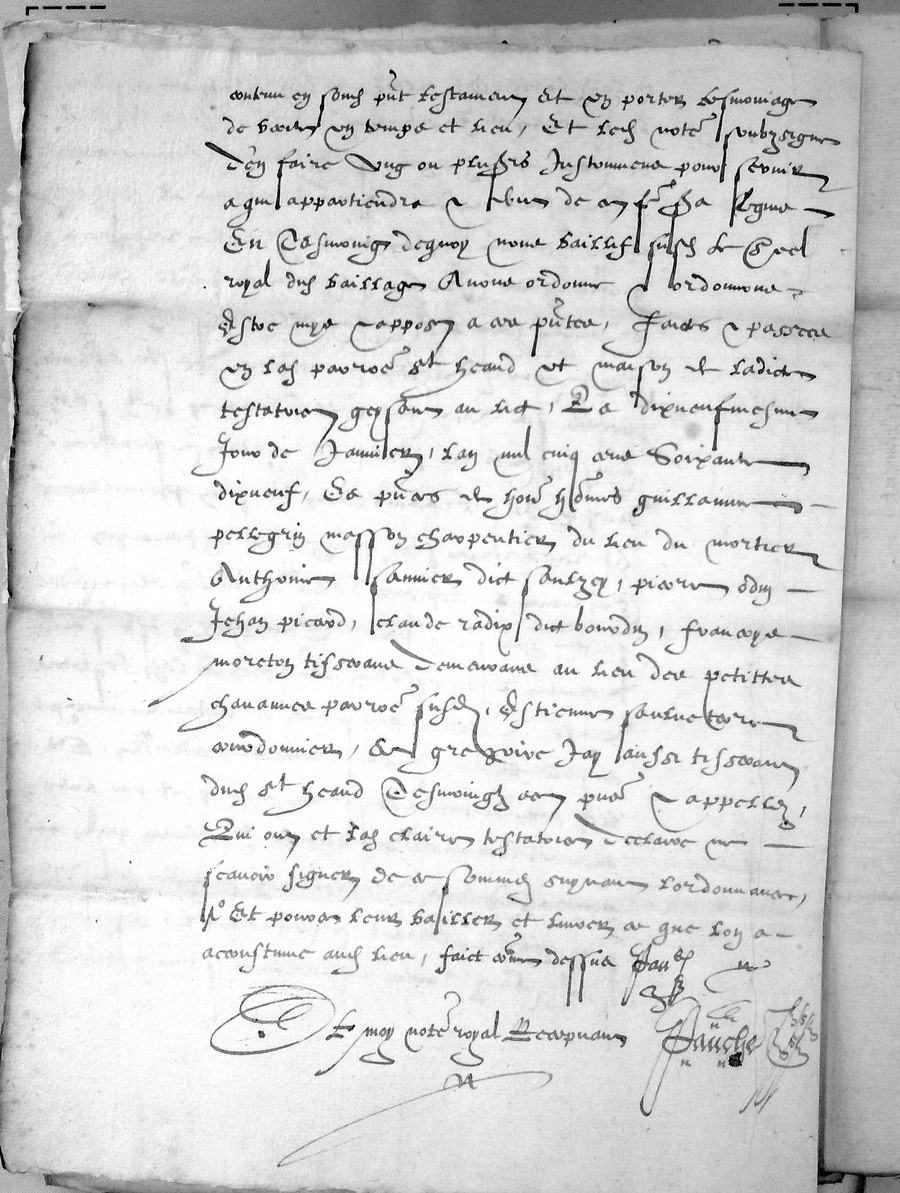 contenu en sond. pnt testament et en porter tesmoniage
de verite en temps et lieu, Et led. note soubzsigne
d'en faire ung ou plusrs Instrumens pour servir
a qui appartiendra &
En Tesmoing dequoy nous baillif susd. le Seel
royal dud. bailliage Avons ordonne & ordonnons
Estre mys & appose a ces pntes, Faictes & passees
en lad. parroe St heand et maison de ladicte
testatrice geysant au lict, Le dixneufviesme
Jour de Janvier, lan mil cinq cens Soixante
dixneuf, Es pnces de hone homes guillaume
pellegrin masson charpentier du lieu du mortier
Anthoine sannier dict saulzey, pierre odin
Jehan picard, claude radix dict bourdin, francoys
moreton tisserans demeurans au lieu des petittes
chavannes parroe susd., Estienne
courdonnier, & gregoire Jay aussi tisserant
dud. St heand Tesmoingz ace pns & appellez,
Qui ont et lad. claire testatrice declaire ne
scavoir signer de ce sommez suyvant lordonnance,
Et pource leur bailler et livrer ce que lon a
acoustume aud. lieu, faict come dessus
Et moy note royal Recepvant Pauche